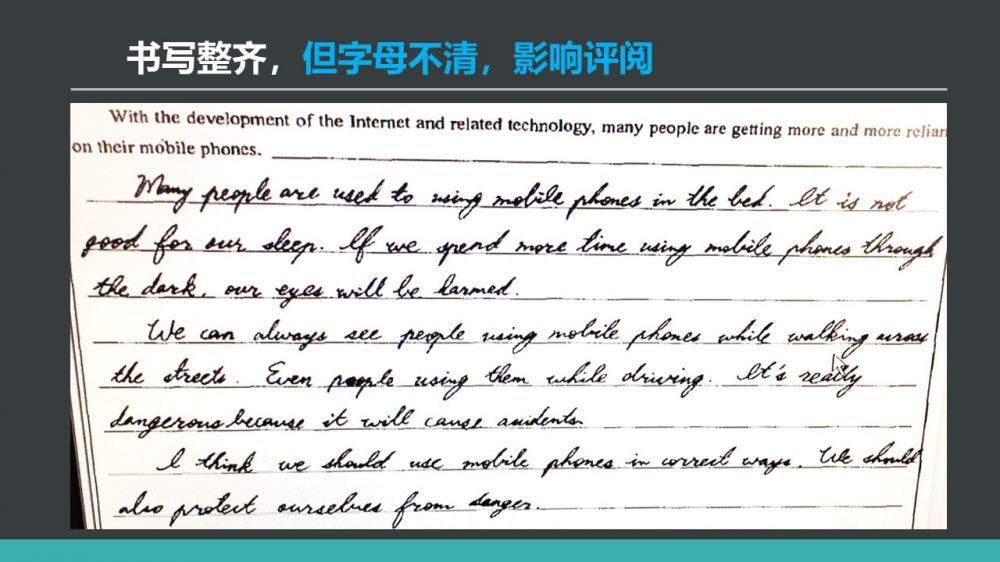 书写整齐，但字母不清，影响评阅
With the development of the Internet and related technology, many people are getting more and more relian
on their mobile phones.
Many people are used to using mobile phones in the bed. It is not
good for our sleep. If we spend more time using mobile phones through
the dark, our eyes will be harmed.
We can always see people using mobile phones while walking across
the streets. Even people using them while driving. It's really
dangerous because it will cause accidents.
I think we should use mobile phones in correct ways. We should
also protect ourselves from danger.